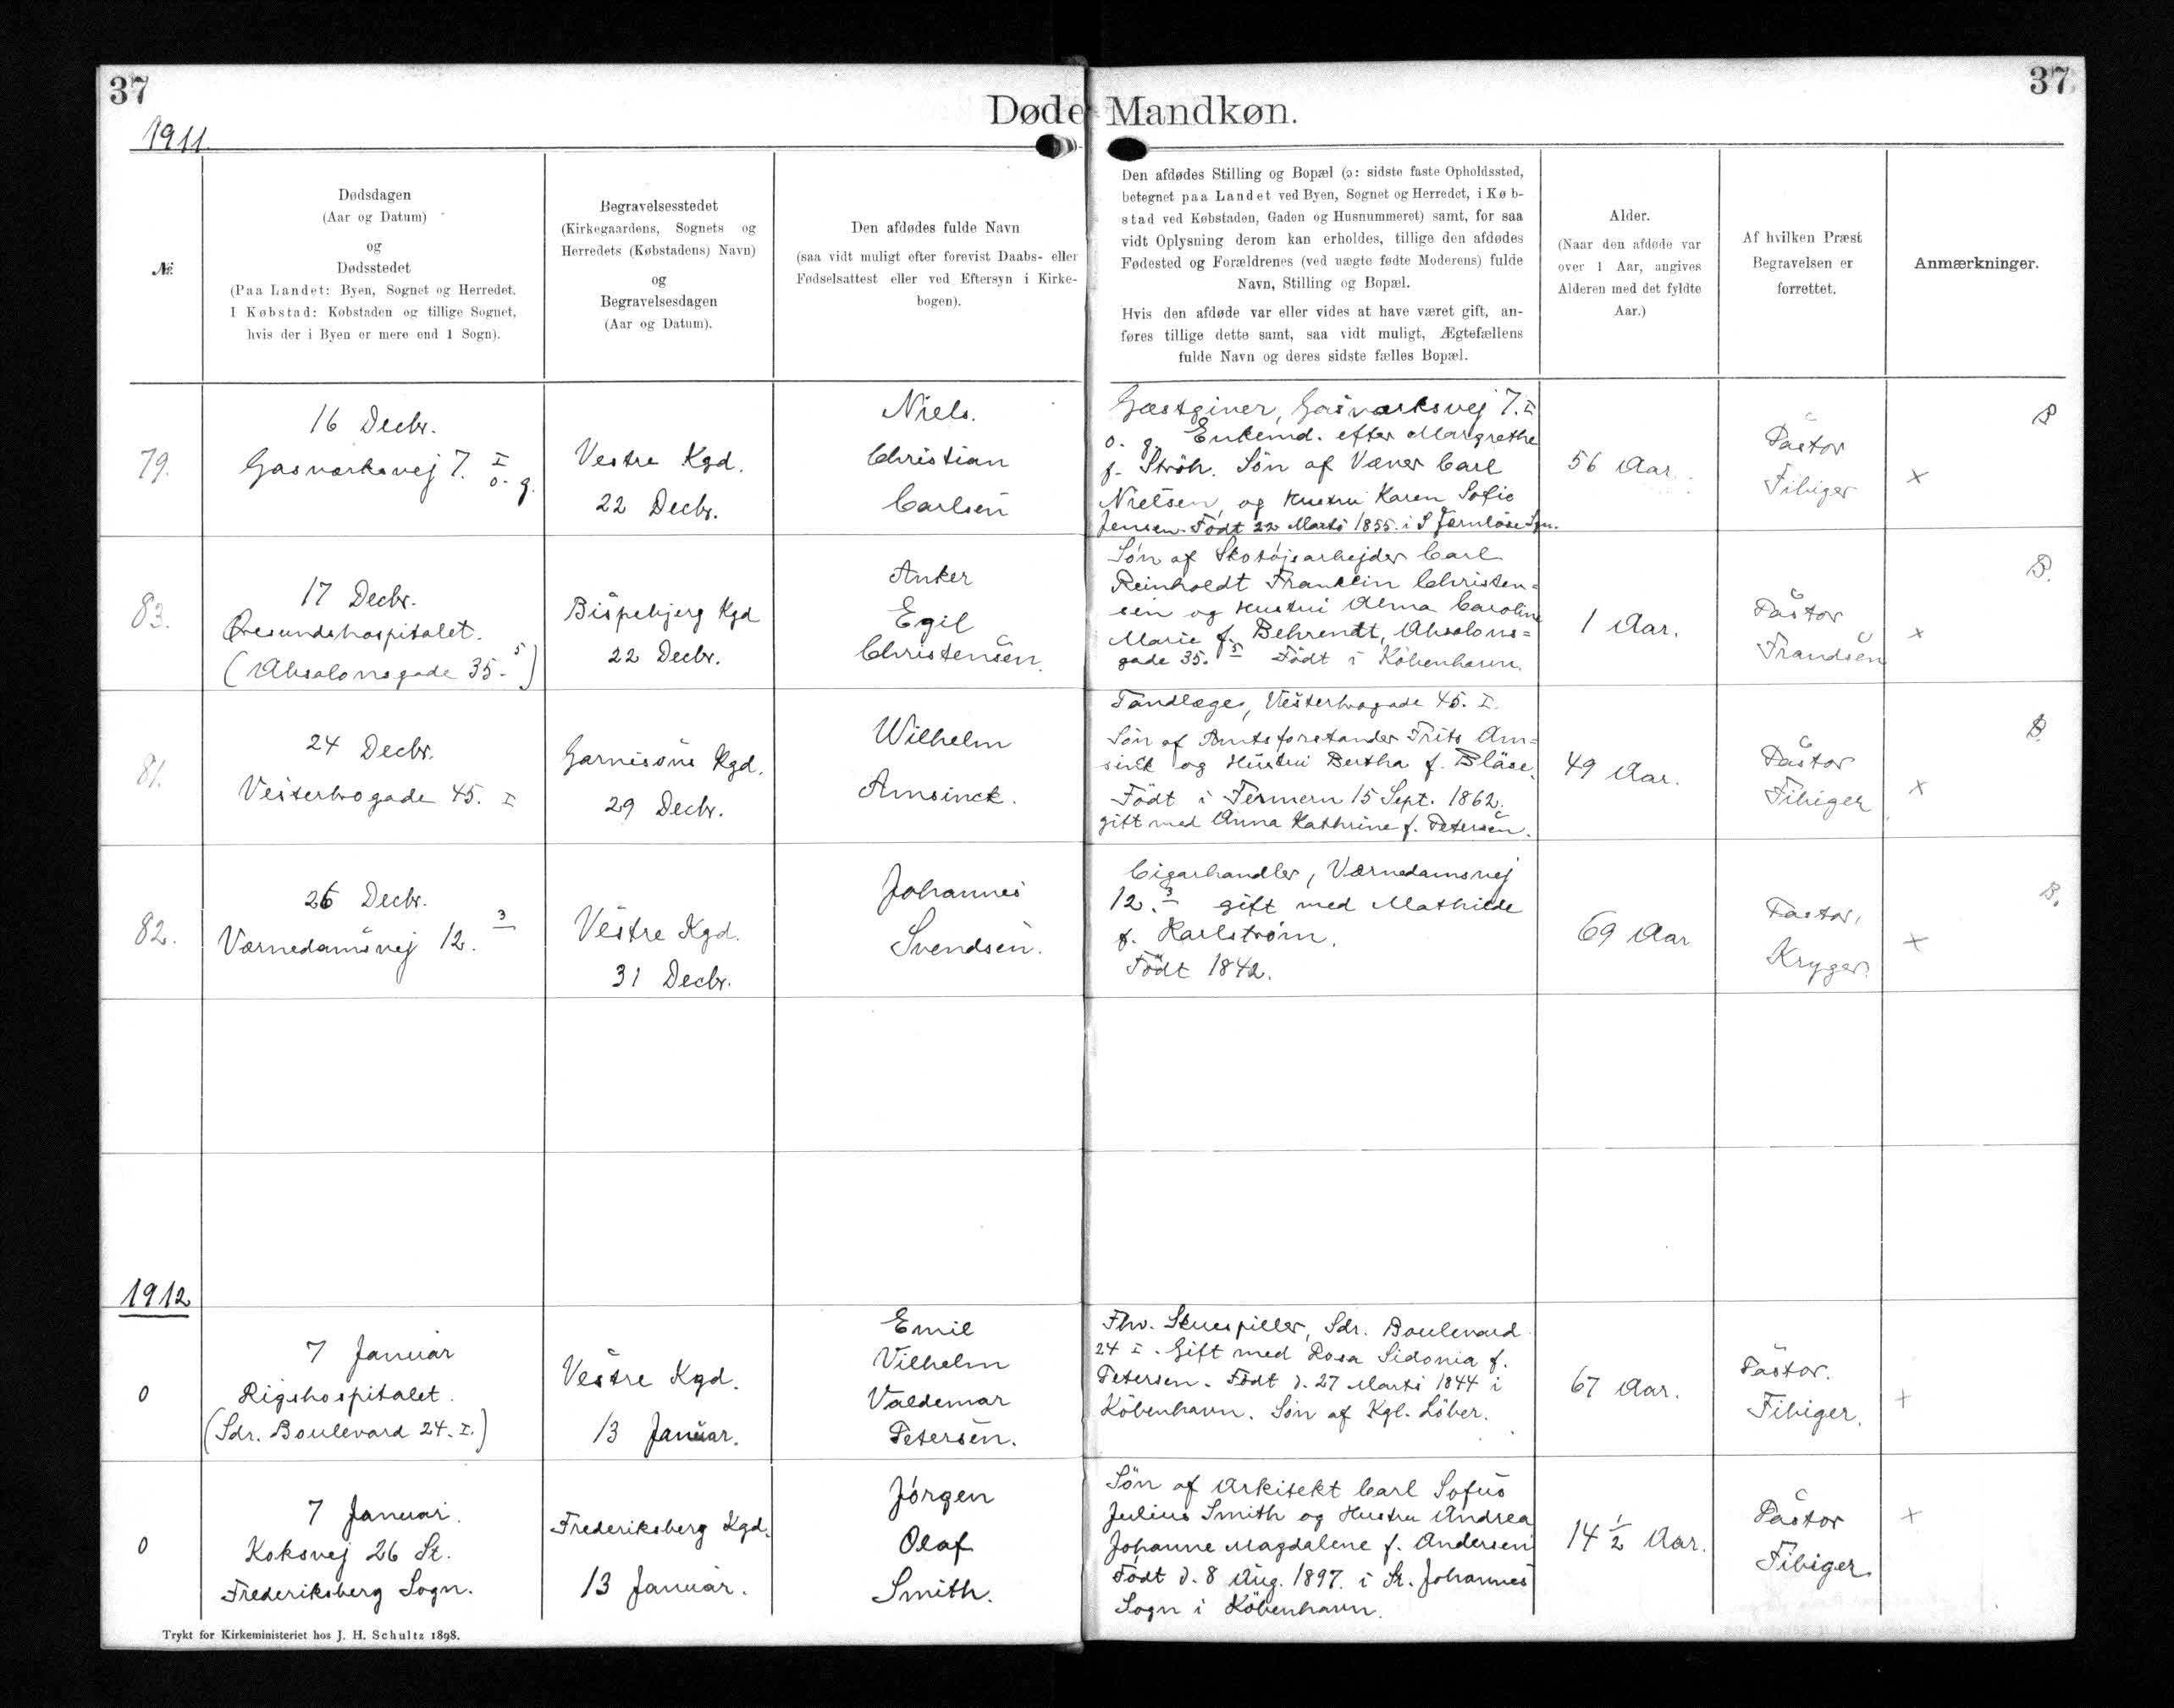 37
37
Døde Mandkøn.
1911.
№
Dødsdagen
(Aar og Datum)
og
Dødsstedet
(Paa Landet: Byen, Sognet og Herredet.
I Købstad: Købstaden og tillige Sognet,
hvis der i Byen er mere end 1 Sogn).
Begravelsesstedet
(Kirkegaardens, Sognets og
Herredets (Købstadens) Navn)
og
Begravelsesdagen
(Aar og Datum).
Den afdødes fulde Navn
(saa vidt muligt efter forevist Daabs- eller
Fødselsattest eller ved Eftersyn i Kirke-
bogen).
Den afdødes Stilling og Bopæl (ɔ: sidste faste Opholdssted,
betegnet paa Landet ved Byen, Sognet og Herredet, i Køb-
stad ved Købstaden, Gaden og Husnummeret) samt, for saa
vidt Oplysning derom kan erholdes, tillige den afdødes
Fødested og Forældrenes (ved uægte fødte Moderens) fulde
Navn, Stilling og Bopæl.
Hvis den afdøde var eller vides at have været gift, an-
føres tillige dette samt, saa vidt muligt, Ægtefællens
fulde Navn og deres sidste fælles Bopæl.
Alder.
(Naar den afdøde var
over 1 Aar, angives
Alderen med det fyldte
Aar.)
Af hvilken Præst
Begravelsen er
forrettet.
Anmærkninger.
79.
16 Decbr.
Gasværksvej 7. I
o. g.
Vestre Kgd.
22 Decbr.
Niels
Christian
Carlsen
Gæstgiver, Gasværksvej 7. I
o. g. Enkemd. efter Margrethe
f. Ströh. Søn af Væver Carl
Nielsen, og Hustru Karen Sofie
Jensen. Født 22 Marts 1855. i S Jernløse Sgn.
56 Aar.
Pastor
Fibiger
×
B
83.
17 Decbr.
Øresundshospitalet.
(Absalonsgade 35. 5)
Bispebjerg Kgd
22 Decbr.
Anker
Egil
Christensen.
Søn af Skotøjsarbejder Carl
Reinholdt Francklin Christen=
sen og Hustru Alma Caroline
Marie f. Behrendt, Absalons=
gade 35. 5 Født i København.
1 Aar.
Pastor
Frandsen
×
B.
81.
24 Decbr.
Vesterbrogade 45. I
Garnisons Kgd.
29 Decbr.
Wilhelm
Amsinck.
Tandlæge, Vesterbrogade 45. I.
Søn af Amtsforstander Frits Am=
sink og Hustru Bertha f. Bläse.
Født i Femern 15 Sept. 1862.
gift med Anna Kathrine f. Petersen.
49 Aar.
Pastor
Fibiger
×
B.
82.
26 Decbr.
Værnedamsvej 12. 3
Vestre Kgd.
31 Decbr.
Johannes
Svendsen.
Cigarhandler, Værnedamsvej
12. 3 gift med Mathilde
f. Karlstrøm.
Født 1842.
69 Aar
Pastor,
Kryger.
×
B.
1912
0
7 Januar
Rigshospitalet.
(Sdr. Boulevard 24. I.)
Vestre Kgd.
13 Januar.
Emil
Vilhelm
Valdemar
Petersen.
Fhv. Skuespiller, Sdr. Boulevard
24 I. Gift med Rosa Sidonia f.
Petersen. Født d. 27 Marts 1844 i
København. Søn af Kgl. Løber.
67 Aar.
Pastor.
Fibiger.
×
0
7 Januar.
Koksvej 26 St.
Frederiksberg Sogn.
Frederiksberg Kgd.
13 Januar.
Jørgen
Olaf
Smith.
Søn af Arkitekt Carl Sofus
Julius Smith og Hustru Andrea
Johanne Magdalene f. Andersen
Født d. 8 Aug. 1897. i St. Johannes
Sogn i København.
14 1/2 Aar.
Pastor
Fibiger
×
Trykt for Kirkeministeriet hos J. H. Schultz 1898.